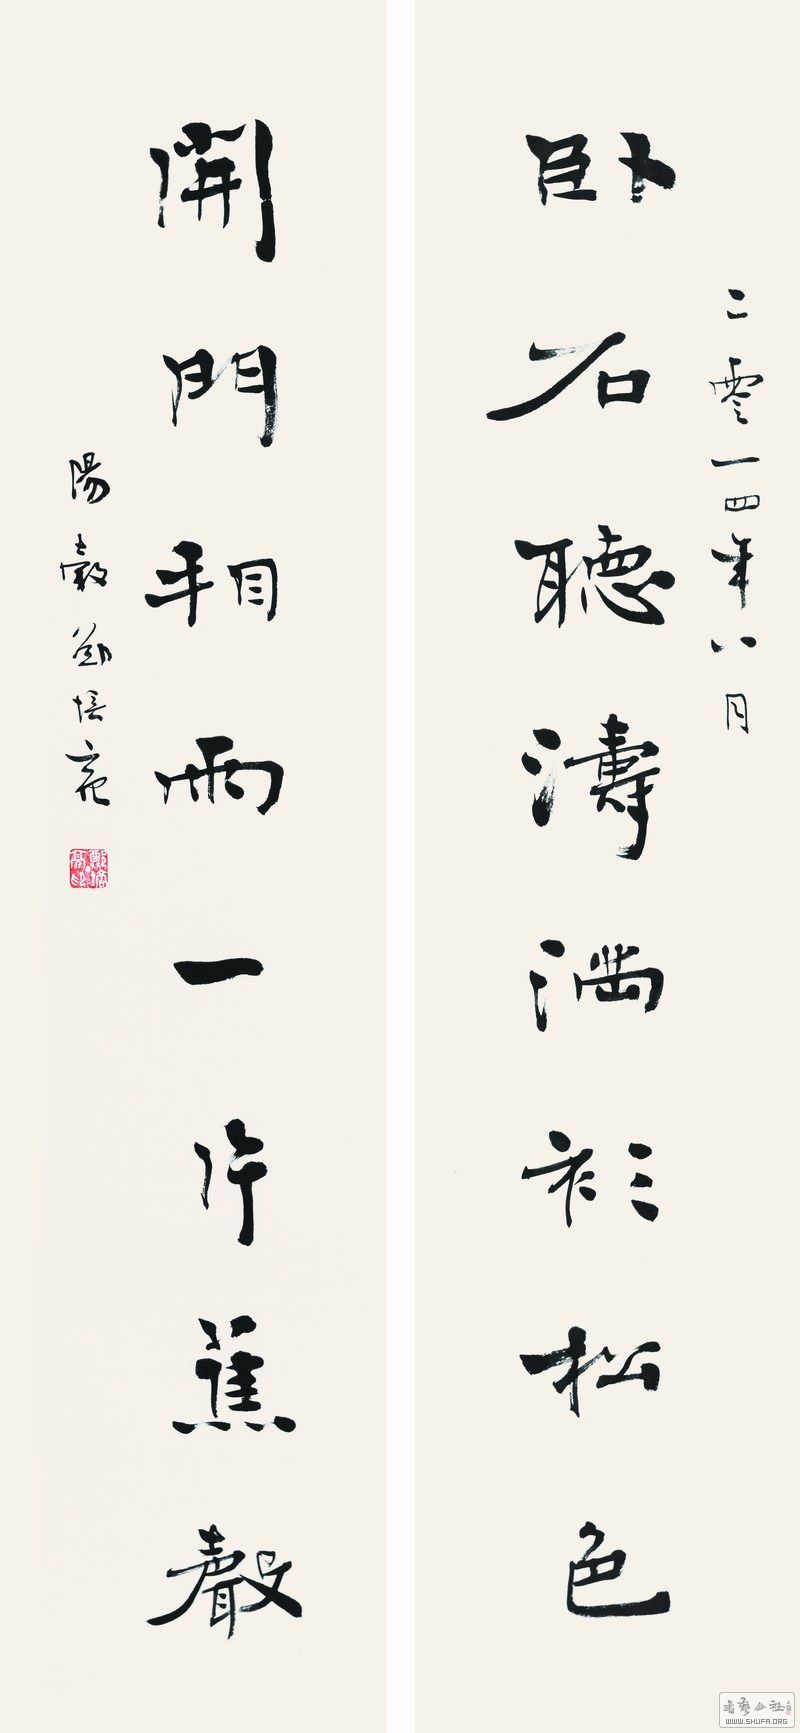 二零一四年八月
卧石聽濤滿衫松色
開門相雨一片蕉聲
陽穀鄭培亮
書藝公社
WWW.SHUFA.ORG